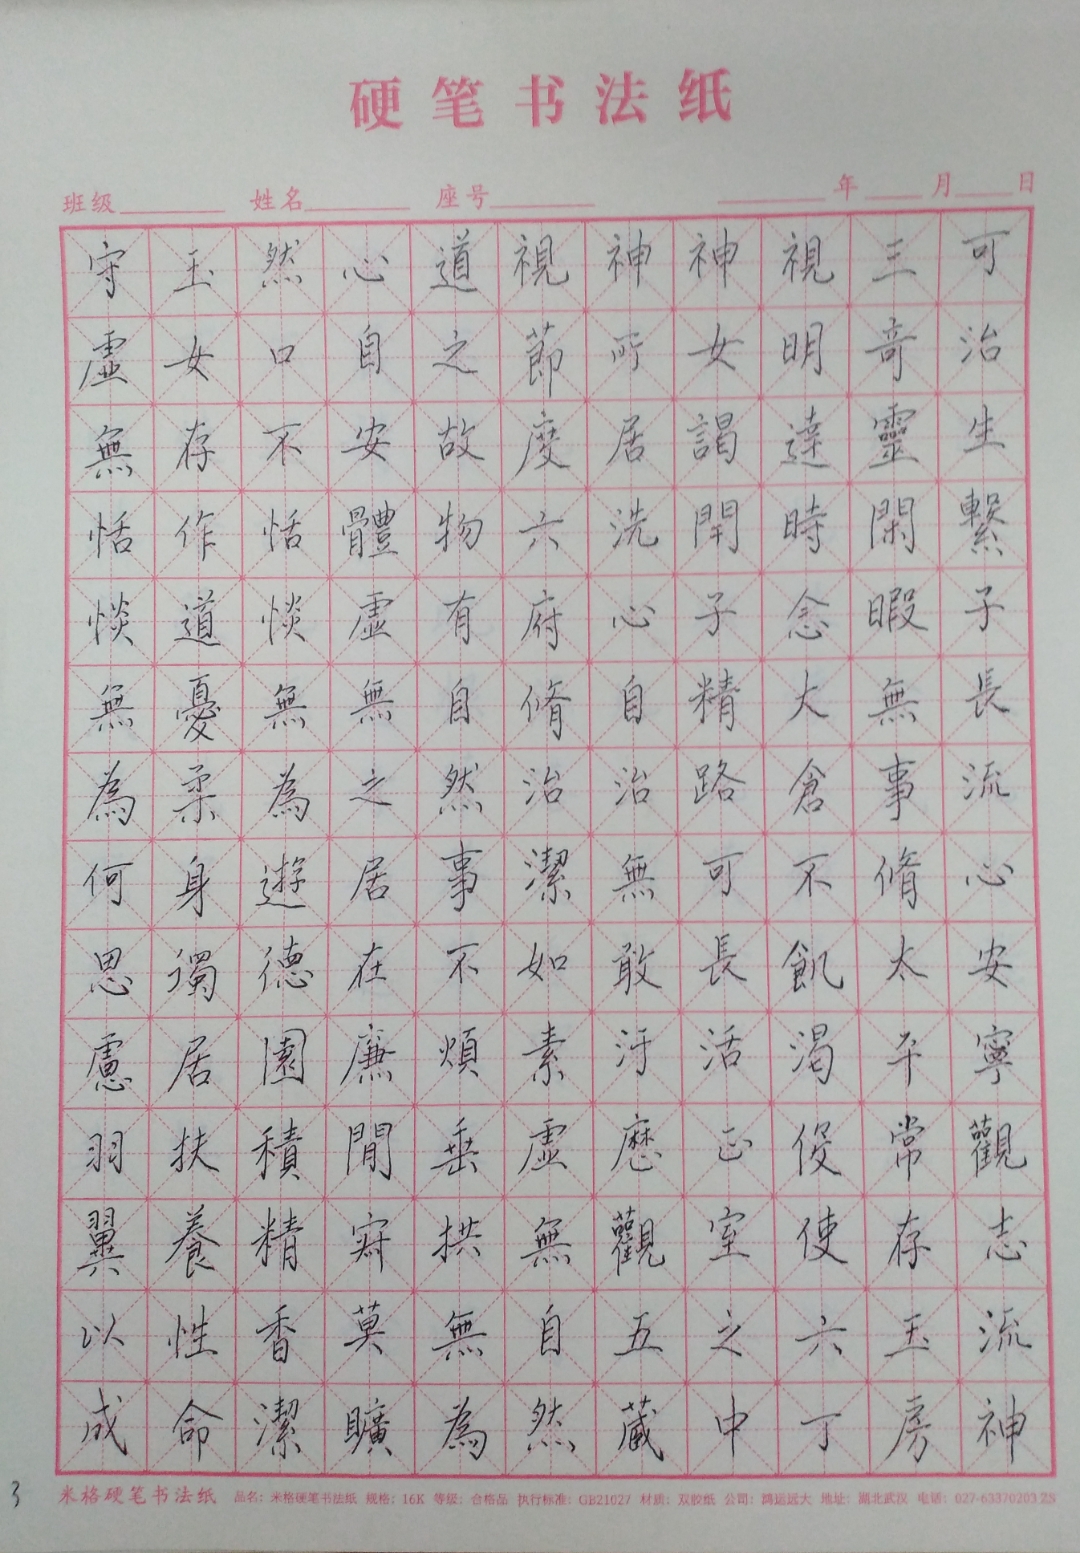 硬笔书法纸
班级 姓名 座号 年 月 日
可治生繫子長流心安寧觀志流神
三奇靈閑暇無事脩太平常存玉房
視明達時念大倉不飢渴役使六丁
神女謁開子精路可長活正室之中
神所居洗心自治無敢汙歷觀五藏
視節度六府脩治潔如素虛無自然
道之故物有自然事不煩垂拱無為
心自安體虛無之居在廉間寂莫曠
然口不恬惔無為遊德園積精香潔
玉女存作道憂柔身獨居扶養性命
守虛無恬惔無為何思慮羽翼以成
3
米格硬笔书法纸 品名：米格硬笔书法纸 规格：16K 等级：合格品 执行标准：GB21027 材质：双胶纸 公司：鸿运远大 地址：湖北武汉 电话：027-63370203